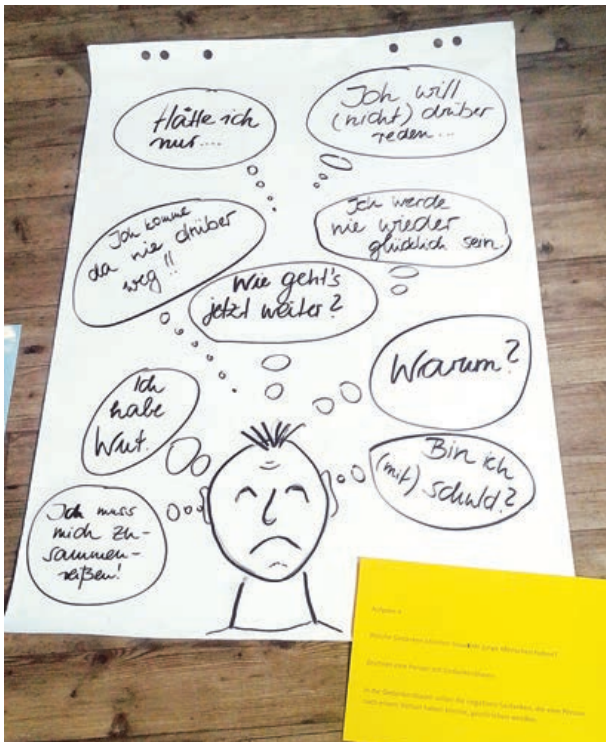 Hätte ich
nur....
Ich will
(nicht) drüber
reden...
Ich komme
da nie drüber
weg!!
Ich werde
nie wieder
glücklich sein.
Wie geht's
jetzt weiter?
Warum?
Ich
habe
Wut.
Bin ich
(mit) schuld?
Ich muss
mich zu-
sammen-
reißen!
Aufgabe 4
Welche Gedanken könnten junge Menschen haben?
Zeichnet eine Person mit Gedankenblasen.
In die Gedankenblasen sollen die negativen Gedanken, die eine Person
nach einem Verlust haben könnte, geschrieben werden.